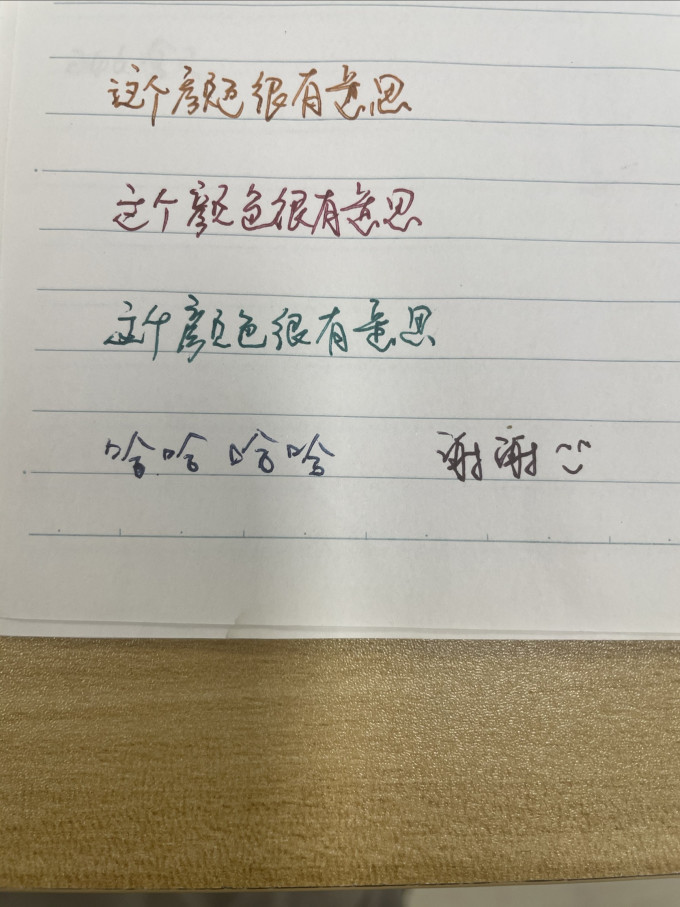 这个颜色很有意思
这个颜色很有意思
这个颜色很有意思
哈哈哈哈 谢谢